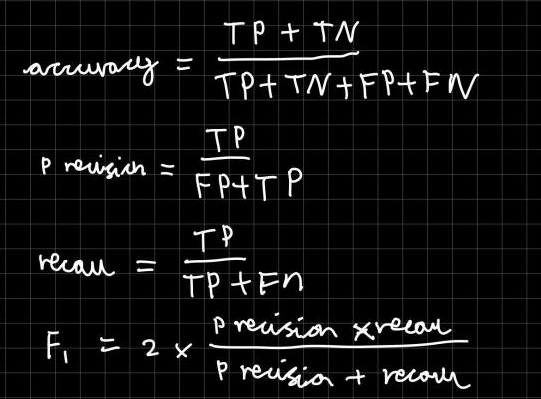 accuracy = TP + TN / TP + TN + FP + FN
precision = TP / FP + TP
recall = TP / TP + Fn
F₁ = 2 × precision × recall / precision + recall